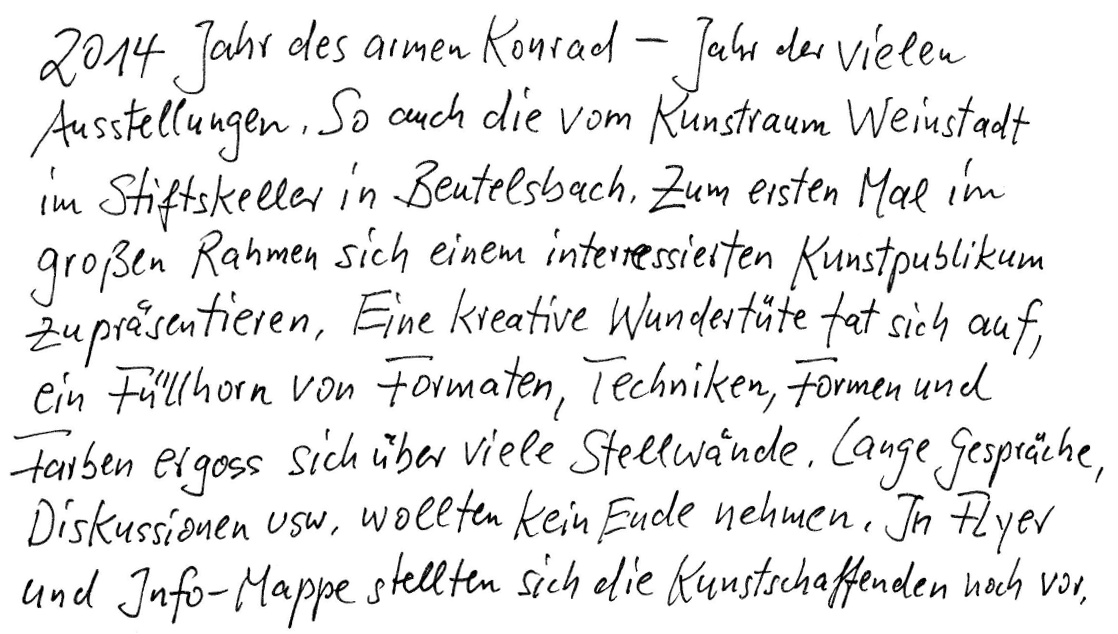 2014 Jahr des armen Konrad – Jahr der vielen
Ausstellungen. So auch die vom Kunstraum Weinstadt
im Stiftskeller in Beutelsbach. Zum ersten Mal im
großen Rahmen sich einem interressierten Kunstpublikum
zu präsentieren. Eine kreative Wundertüte tat sich auf,
ein Füllhorn von Formaten, Techniken, Formen und
Farben ergoss sich über viele Stellwände. Lange Gespräche,
Diskussionen usw. wollten kein Ende nehmen. In Flyer
und Info-Mappe stellten sich die Kunstschaffenden noch vor.